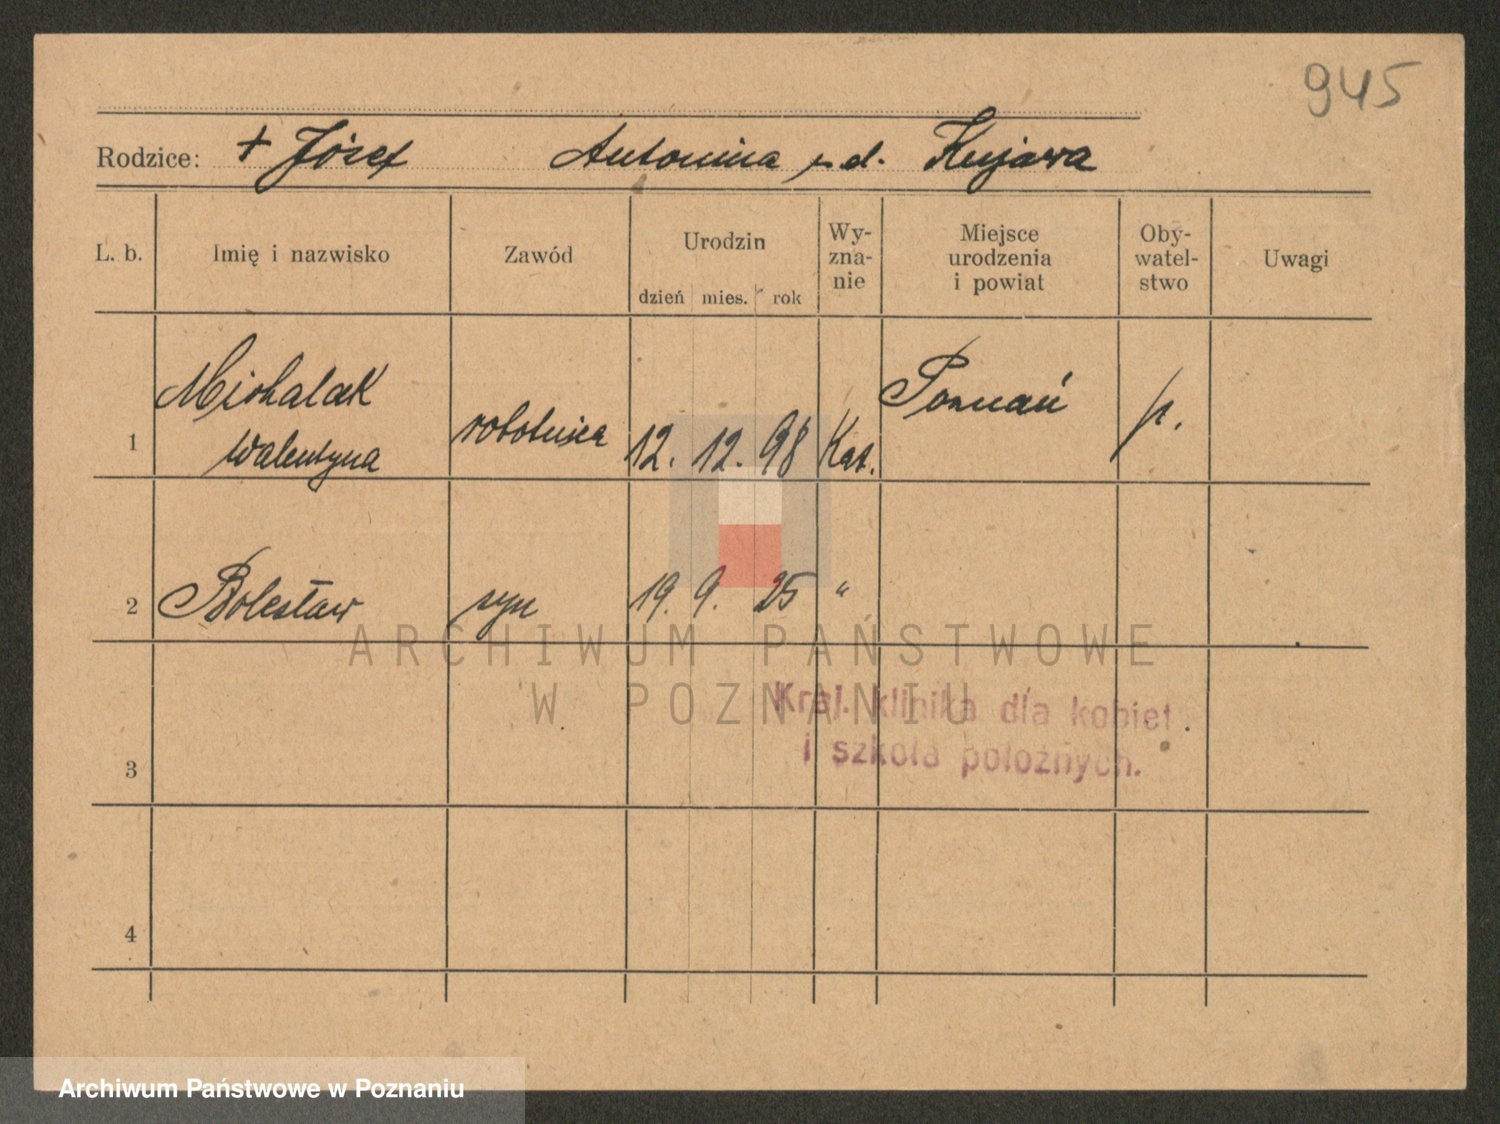 945
Rodzice: + Józef Antonina z d. Kujawa
L. b. Imię i nazwisko Zawód Urodzin dzień mies. rok Wy-zna-nie Miejsce urodzenia i powiat Oby-watel-stwo Uwagi
1 Michalak Walentyna robotnica 12. 12. 98 Kat. Poznań p.
2 Bolesław syn 19. 9. 25 "
ARCHIWUM PAŃSTWOWE
W POZNANIU
Kraj. klinika dla kobiet
i szkoła położnych.
3
4
Archiwum Państwowe w Poznaniu